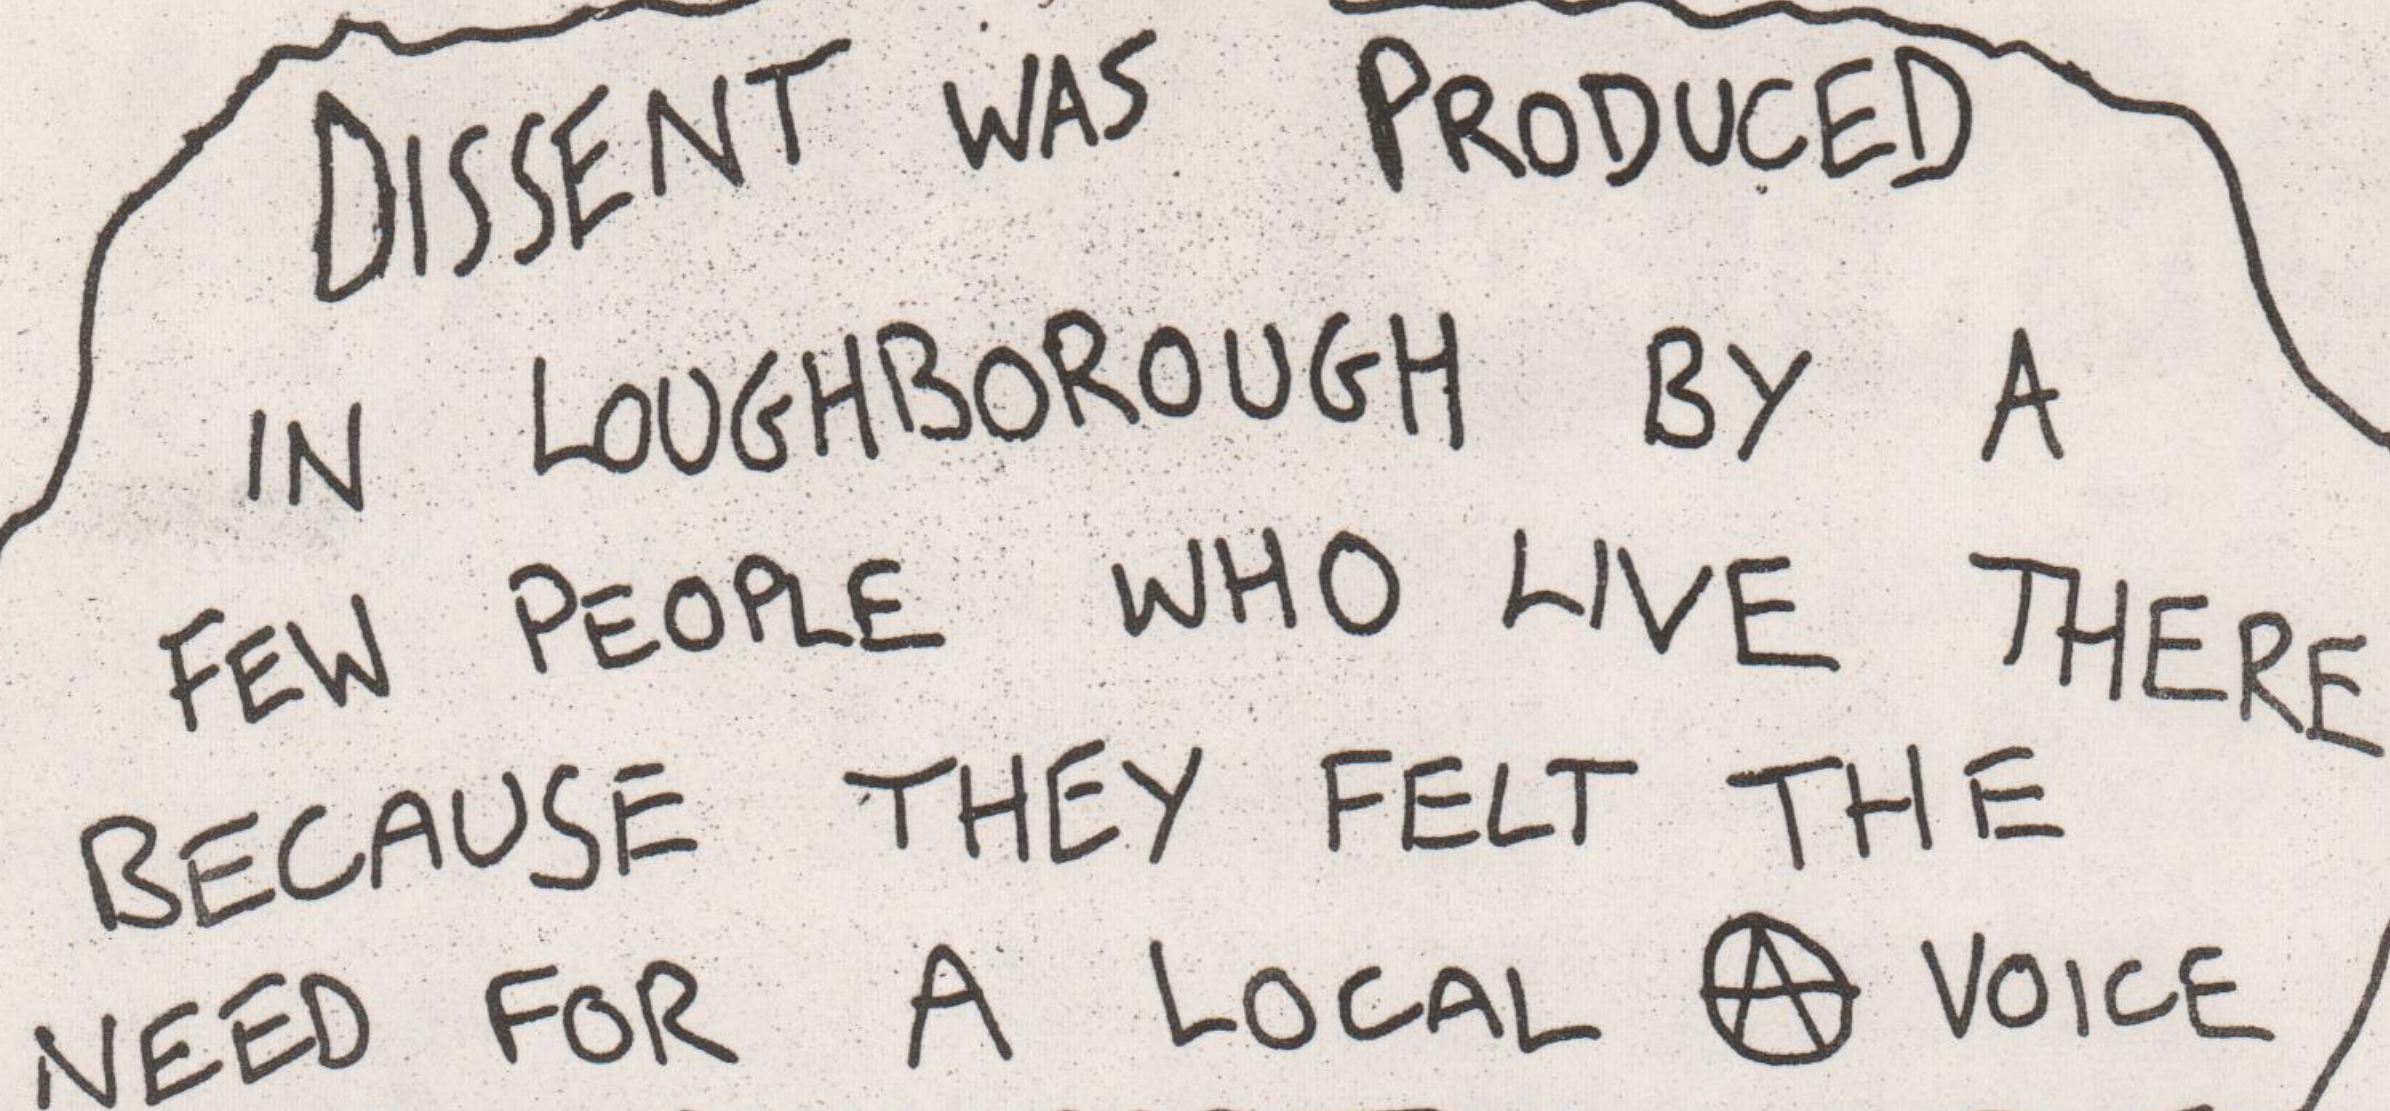 DISSENT WAS PRODUCED
IN LOUGHBOROUGH BY A
FEW PEOPLE WHO LIVE THERE
BECAUSE THEY FELT THE
NEED FOR A LOCAL Ⓐ VOICE